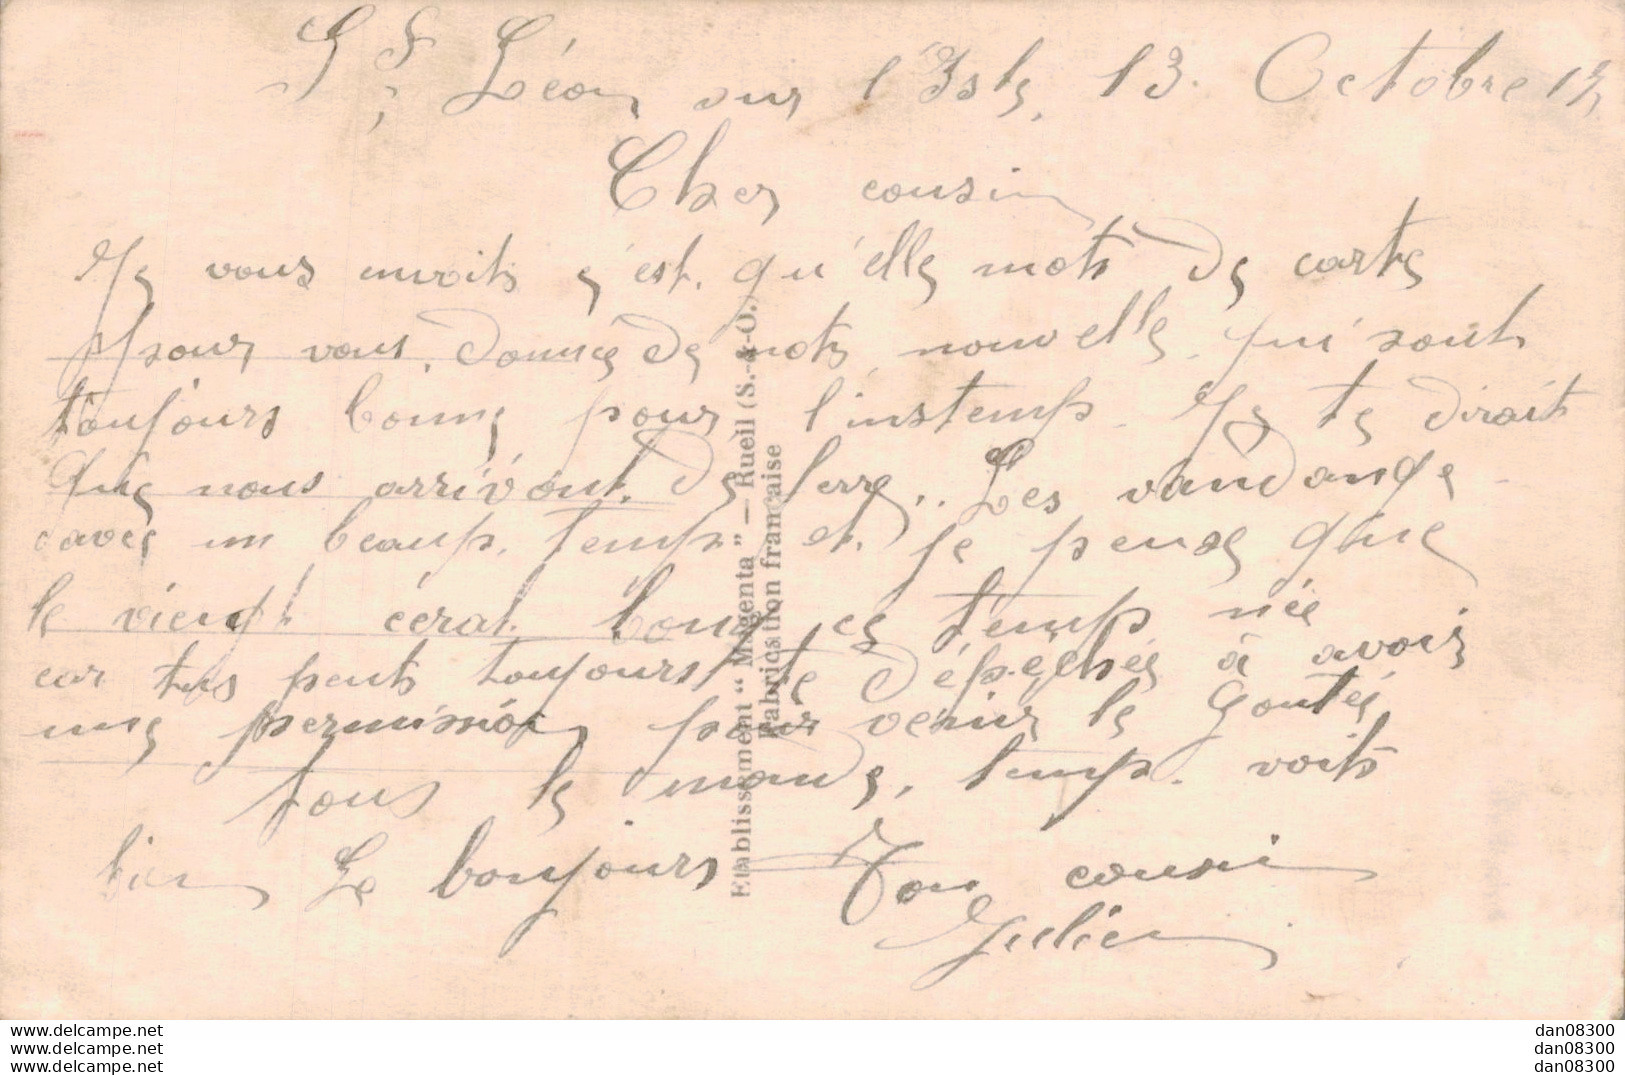 St Léon sur l'Isle, 13. Octobre 17
Cher cousin
Je vous envoits c'est. qu'elle mots de carte
pour vous. donnée de nots nouvelle. qui sont
toujours bonne pour l'instemp. Je te dirait
que nous arrivont. de ferre,. Les vandange
avec un beaup. temp. et. je pense que
le viengt cérat. bon ce temp née
car tus peut toujours te dépeché à avoir
une permission pour venir le Goutée
tous le monde. temp. voits
bien Le bonjours Ton cousin
Julien
Etablissement "Magenta" — Rueil (S.-&-O.)
Fabrication française
www.delcampe.net
www.delcampe.net
www.delcampe.net
dan08300
dan08300
dan08300